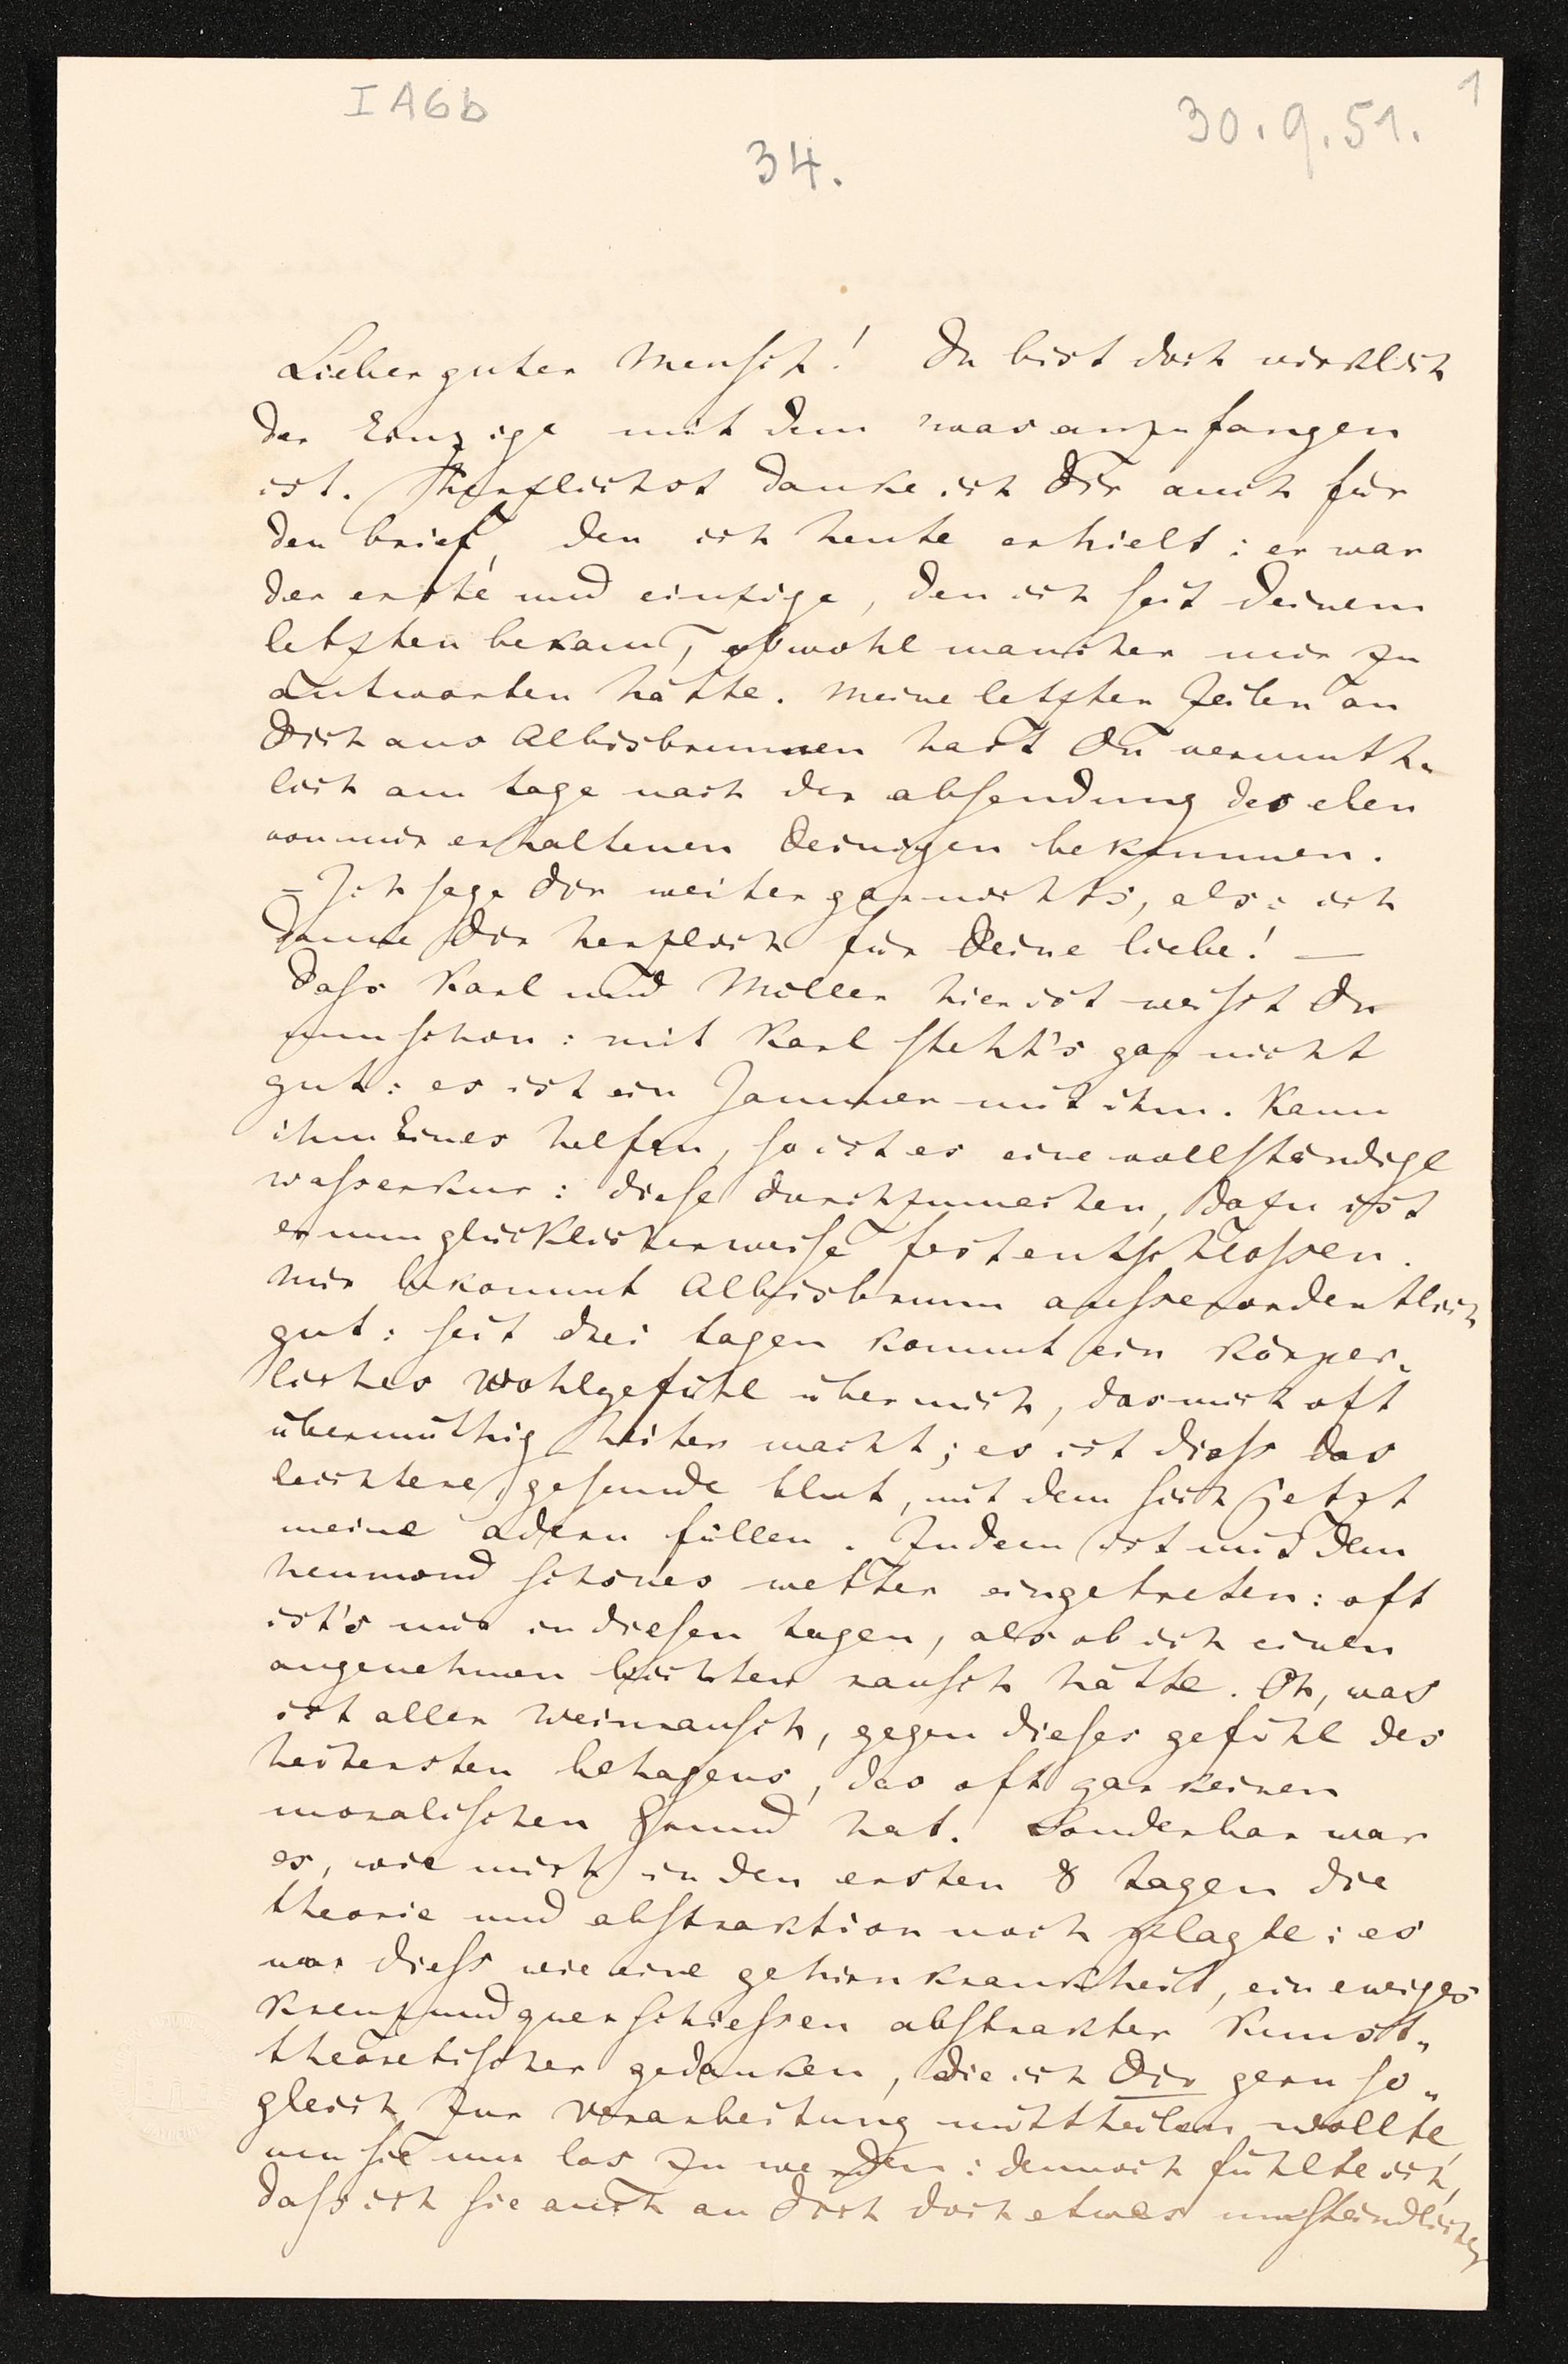 I A 6 b
1
30.9.51.
34.
Lieber guter Mensch! Du bist doch wirklich
der Einzige mit dem was anzufangen
ist. Herzlichst danke ich Dir auch für
den brief, den ich heute erhielt: er war
der erste und einzige, den ich seit Deinem
letzten bekam, obwohl mancher mir zu
antworten hätte. Meine letzten Zeilen an
Dich aus Albisbrunnen hast Du vermuth„
lich am tage nach der absendung des eben
von mir erhaltenen Deinigen bekommen.
– Ich sage Dir weiter gar nichts, als: ich
danke Dir herzlich für Deine liebe! —
Dass Karl und Müller hier ist weisst Du
nun schon: mit Karl steht's gar nicht
gut: es ist ein Jammer mit ihm. Kann
ihm Eines helfen, so ist es eine vollständige
wasserkur: diese durchzumachen, dazu ist
er nun glücklicherweise fest entschlossen.
Mir bekommt Albisbrunn ausserordentlich
gut: seit drei tagen kommt ein körper„
liches Wohlgefühl über mich, das mich oft
übermüthig heiter macht; es ist diess das
leichtere, gesunde blut, mit dem sich jetzt
meine adern füllen. Zudem ist mit dem
neumond schönes wetter eingetreten: oft
ist's mir in diesen tagen, als ob ich einen
angenehmen leichten rausch hätte. Oh, was
ist aller Weinrausch, gegen dieses gefühl des
heitersten behagens, das oft gar keinen
moralischen Grund hat. Sonderbar war
es, wie mich in den ersten 8 tagen die
theorie und abstraktion noch plagte: es
war diess wie eine gehirnkrankheit, ein ewiges
kreuz und querschiessen abstrakter kunst„
theoretischer gedanken, die ich Dir gern so„
gleich zur Verarbeitung mittheilen wollte,
um sie nur los zu werden: dennoch fühlte ich,
dass ich sie auch an Dich doch etwas umständlicher